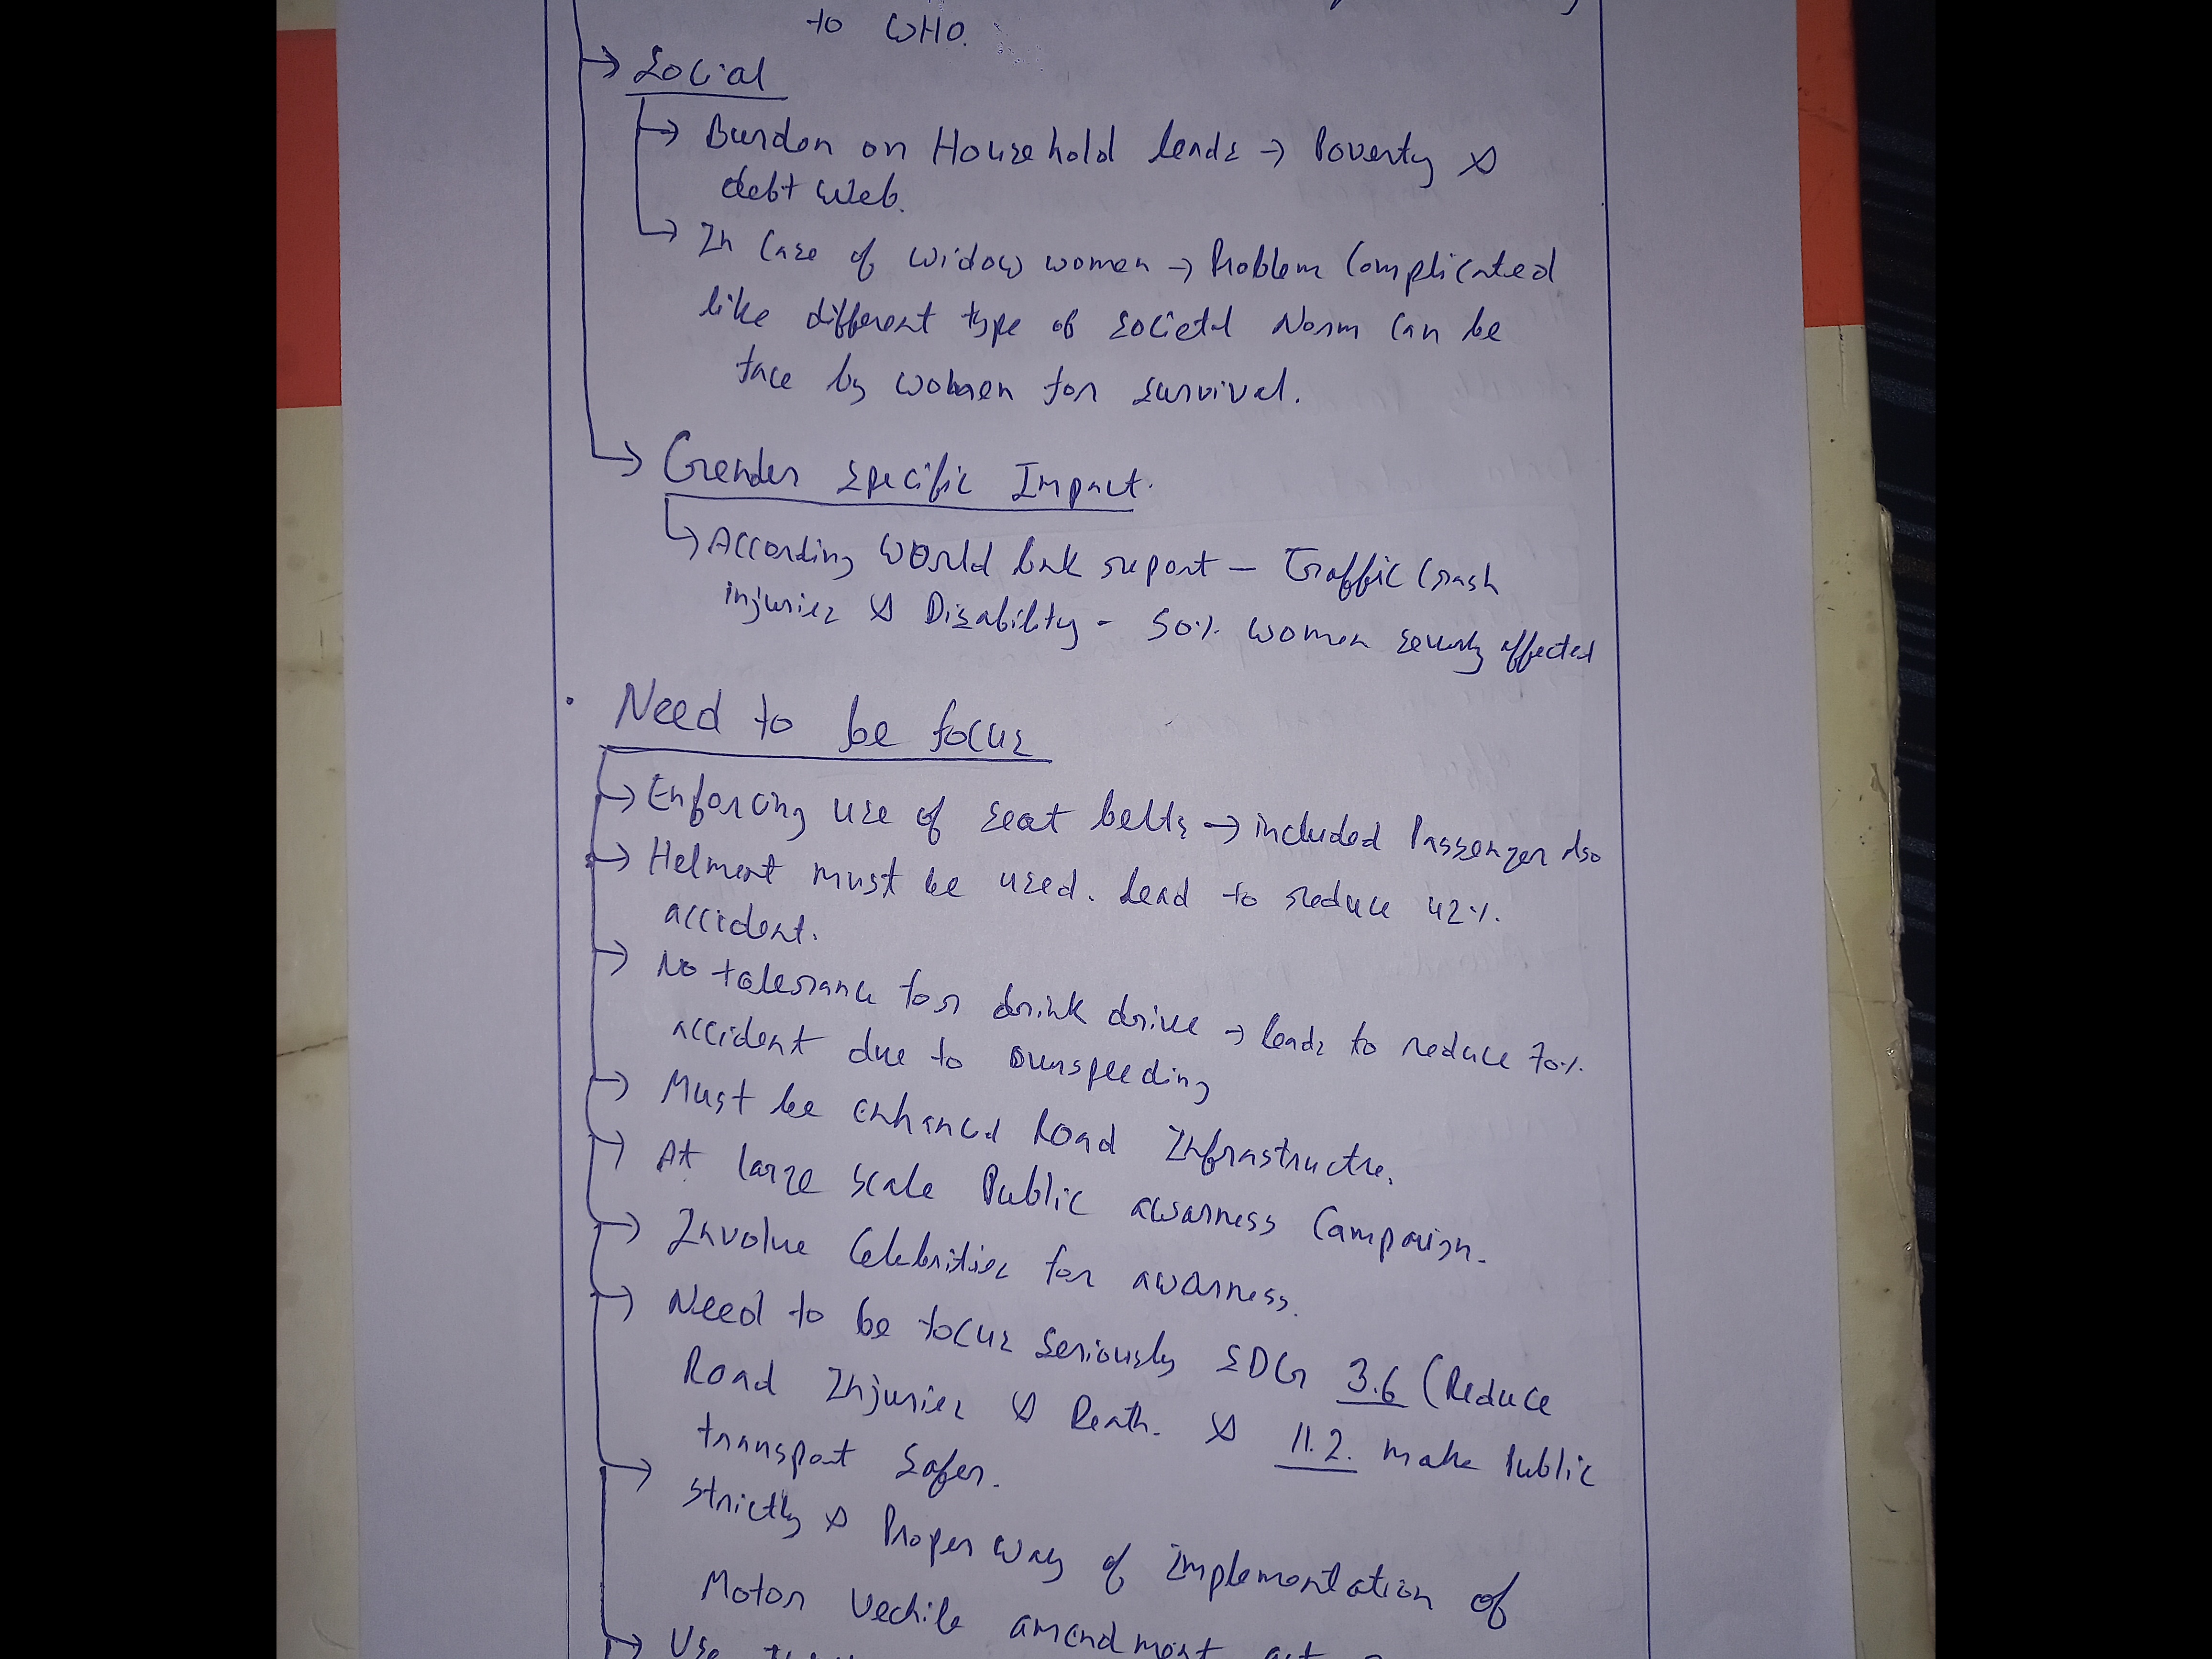 to WHO.
→ Social
→ Burden on Household leads → Poverty &
debt web.
→ In Case of widow women → Problem Complicated
like different type of societal Norm Can be
face by women for survival.
→ Gender specific Impact.
→ According World bank report - Traffic Crash
injuries & Disability - 50% women severly affected
• Need to be focus
→ Enforcing use of seat belts → included Passenger also
→ Helment must be used. Lead to reduce 42%
accident.
→ No tolerance for drink drive → leads to reduce 70%
accident due to overspeeding
→ Must be enhanced Road Infrastructre.
→ At large scale Public awarness Campaign.
→ Involve Celebrities for awarness.
→ Need to be focus seriously SDG 3.6 (Reduce
Road Injuries & Death. & 11.2. make Public
transport safer.
→ Strictly & Proper way of implementation of
Motor Vechile amendment act
→ Use